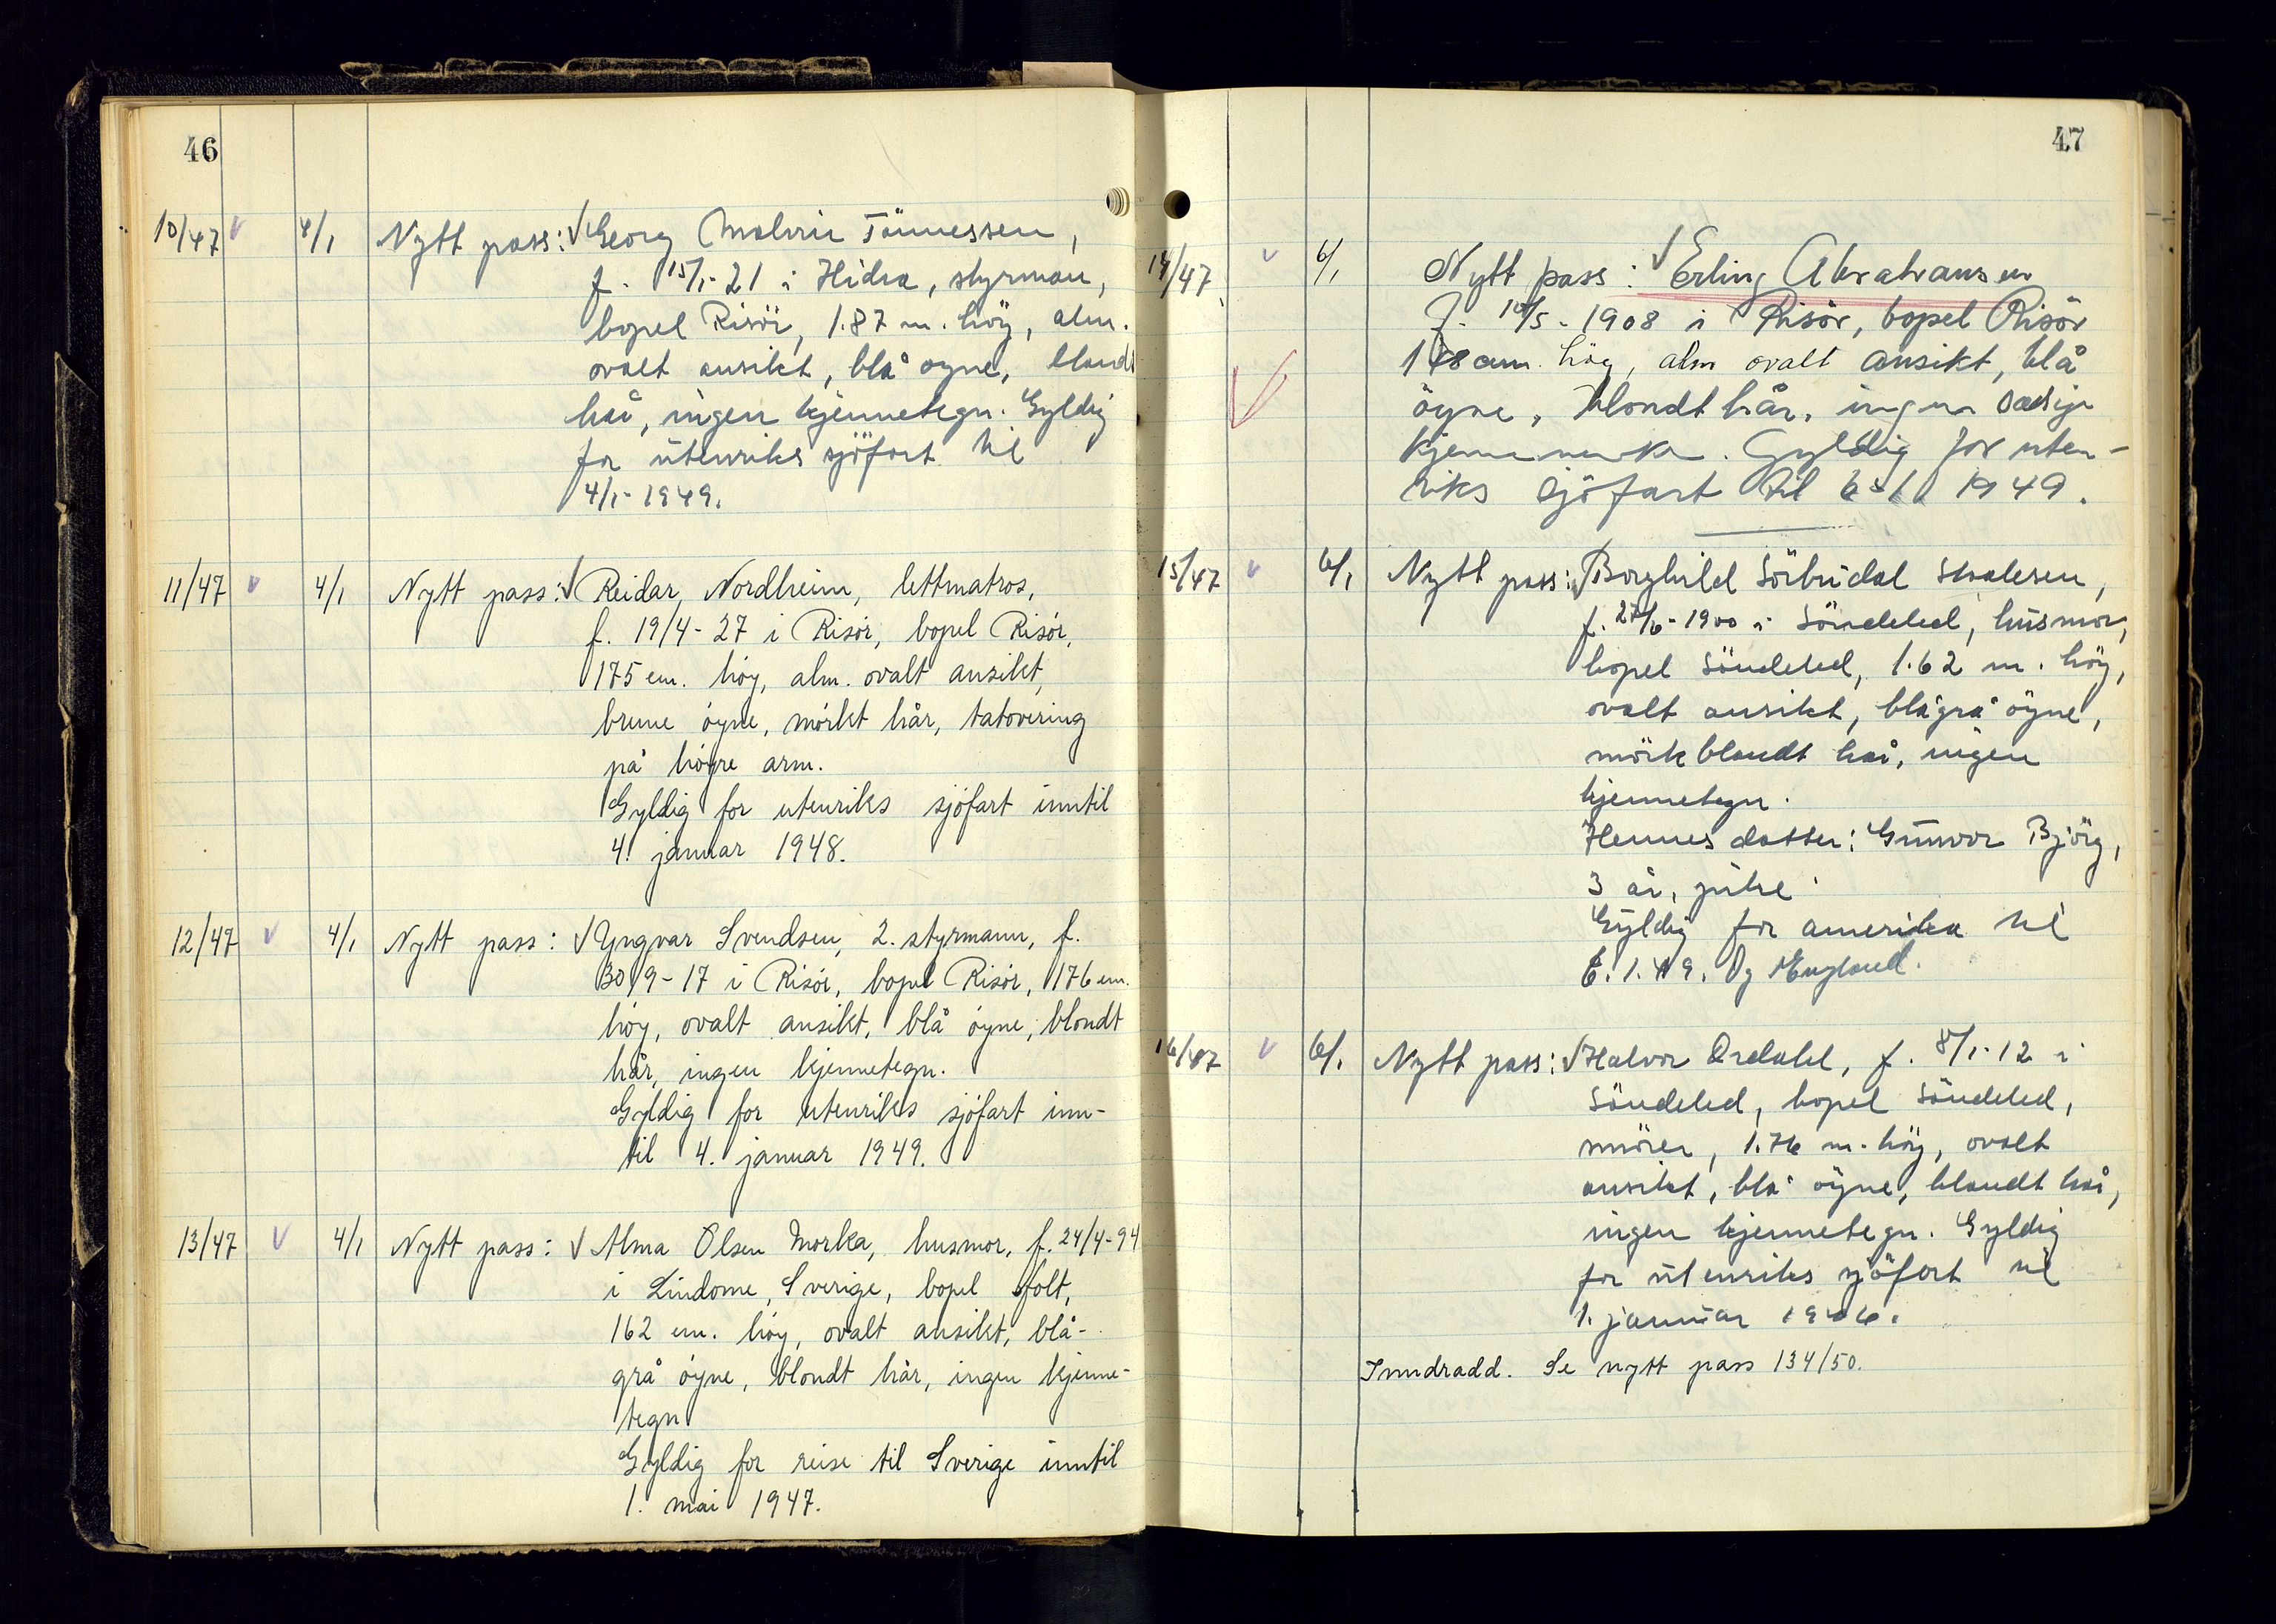 46
10/47 v 4/1 Nytt pass: √ Georg Malvin Tönnessen,
f. 15/1-21 i Hidra, styrman,
bopel Risör, 1.87 m. höy, alm.
ovalt ansikt, blå öyne, blondt
hår, ingen kjennetegn. Gyldig
for utenriks sjöfart til
4/1-1949.
11/47 v 4/1 Nytt pass: √ Reidar Nordheim, lettmatros,
f. 19/4-27 i Risör, bopel Risör,
175 cm. höy, alm. ovalt ansikt,
brune öyne, mörkt hår, tatovering
på höyre arm.
Gyldig for utenriks sjöfart inntil
4. januar 1948.
12/47 v 4/1 Nytt pass: √ Yngvar Svendsen, 2. styrmann, f.
30/9-17 i Risör, bopel Risör, 176 cm.
höy, ovalt ansikt, blå öyne, blondt
hår, ingen kjennetegn.
Gyldig for utenriks sjöfart inn-
til 4. januar 1949.
13/47 v 4/1 Nytt pass: √ Alma Olsen Morka, husmor, f. 24/4-94
i Lindome, Sverige, bopel
162 cm. höy, ovalt ansikt, blå-
grå öyne, blondt hår, ingen kjenne-
tegn
Gyldig for reise til Sverige inntil
1. mai 1947.
47
14/47 v 6/1 Nytt pass: √ Erling Abrahamsen
f. 1908 i Risör, bopel Risör
höy, alm ovalt ansikt, blå
öyne, blondt hår, ingen
kjennemerke. Gyldig for uten-
riks sjöfart til 6-1 1949.
15/47 v 6/1 Nytt pass: √ Borghild Sörbudal
f. 1900 i Söndeled, husmor,
bopel Söndeled, 1.62 m. höy,
ovalt ansikt, blågrå öyne,
mörkblondt hår, ingen
kjennetegn.
Hennes datter: Gunvor Björg,
3 år, pike.
Gyldig for amerika til
6.1.49. Og England.
16/47 v 6/1 Nytt pass: √ Halvor Ørdahl, f. 8/1-12 i
Söndeled, bopel Söndeled,
murer, 1.76 m. höy, ovalt
ansikt, blå öyne, blondt hår,
ingen kjennetegn. Gyldig
for utenriks sjöfart til
1. januar
Inndradd. Se nytt pass 134/50.